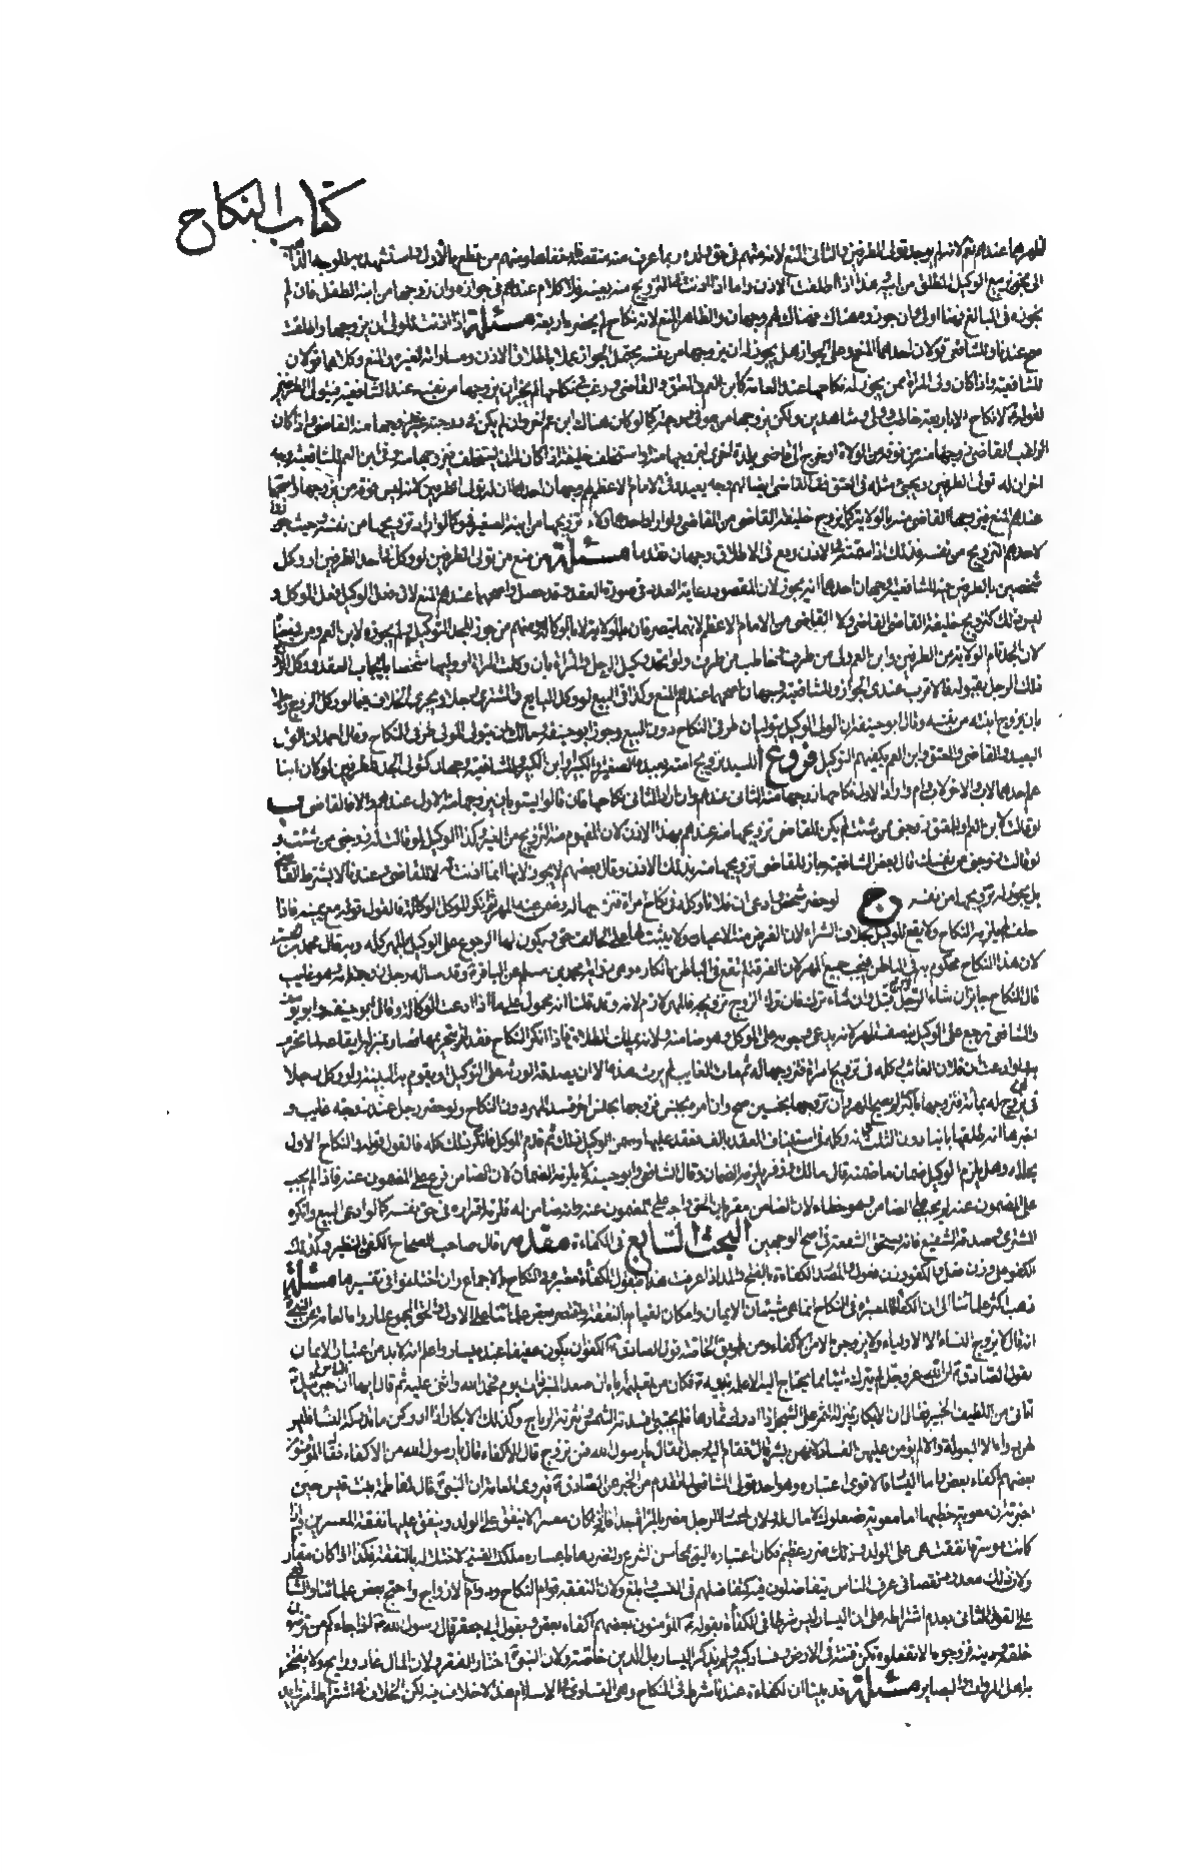 كتاب النكاح
اظهرهما عندهم نعم لانه لم يوجد تولى الطرفين والثانى المنع لانه متهم فى حق ولده ومنهم من قطع بالأول واستشهد
الى تجويز بيع الوكيل المطلق من ابنه هذا اذا اطلقت الاذن واما اذا اذنت فى التزويج منه بعينه فلا كلام عندهم فى جوازه وان زوجها من ابنه الطفل فان لم
يجوزه فى البالغ فهنا اولى وان جوزوه هناك فهنا لهم وجهان والظاهر المنع لانه نكاح لم يحضره اربعة مسئلة اذا اذنت للولى ان يزوجها واطلقت
صح عندنا وللشافعى قولان احدهما المنع وعلى الجواز هل يجوز له ان يزوجها من نفسه يحتمل الجواز عملا باطلاق الاذن ومساواته لغيره والمنع وكلاهما قولان
للشافعية واذا كان ولى المرأة ممن يجوز له نكاحها عند العامة كابن العم والمعتق والقاضى ورغب فى نكاحها لم يجز ان يزوجها من نفسه عند الشافعية فيتولى الطرفين
لقوله لا نكاح الا باربعة خاطب وولى وشاهدين ولكن يزوجها من هو فى درجته كما لو كان هناك ابن عم اخر وان لم يكن فى درجته غيره زوجها منه القاضى واذا كان
الراغب القاضى زوجها منه من فوقه من الولاة او خرج الى قاضى بلدة اخرى ليزوجها منه او استخلف خليفة ان كان له ان يستخلف فيزوجها منه وفى ابن العم للشافعية وجه
اخر ان له تولى الطرفين ويجئ مثله فى المعتق وفى القاضى ايضا لهم وجه بعيد وفى الامام الاعظم لهم وجهان احدهما ان له تولى الطرفين لانه ليس فوقه من يزوجها واصحهما
عندهم المنع فيزوجها القاضى منه بالولاية كما يزوج خليفة القاضى من القاضى ولو اراد احد هؤلاء تزويجها من ابنه الصغير فهو كما لو اراد تزويجها من نفسه وحيث يجوز
لاحدهم التزويج من نفسه فذلك اذا سمته فى الاذن ومع الاطلاق وجهان تقدما مسئلة من منع من تولى الطرفين لو وكل فى احد الطرفين او وكل
شخصين بالطرفين فيه للشافعية وجهان احدهما انه يجوز لان المقصود رعاية العدد فى صورة العقد وقد حصل واصحهما عندهم المنع لان فعل الوكيل فعل الموكل و
ليس ذلك كتزويج خليفة القاضى القاضى ولا القاضى من الامام الاعظم لانهما يتصرفان بالولاية لا بالوكالة ومنهم من جوز للجد التوكيل ولم يجوزه لابن العم ومن فى معناه
لان الجد تام الولاية من الطرفين وابن العم ولى من طرف خاطب من طرف ولو اتحد وكيل الرجل والمرأة بان وكلت المرأة او وليها شخصا بايجاب العقد ووكل الزوج
ذلك الرجل بقبوله فالاقرب عندى الجواز وللشافعية وجهان اصحهما عندهم المنع وكذا فى البيع لو وكل البايع والمشترى رجلا ويجرى الخلاف فيما لو وكل الزوج رجلا
بان يزوج ابنته من نفسه وقال ابو حنيفة ان الولى والوكيل يتوليان طرفى النكاح دون البيع وجوز ابو حنيفة ومالك ان يتولى الولى طرفى النكاح وقال احمد ان القريب
البعيد والقاضى والمعتق وابن العم يكفيهم التوكيل فروع ا للسيد تزويج امته بعبده الصغير او الكبير او ابن الكبير وللشافعية وجهان كتولى الجد الطرفين لو كان ابنا
عم احدهما لاب والاخر لاب وام واراد الاول نكاحها زوجها منه الثانى عندهم وان اراد الثانى نكاحها فان قالوا يستويان زوجها منه الاول عندهم والا فالقاضى ب
لو قالت لابن العم او المعتق زوجنى ممن شئت لم يكن للقاضى تزويجها منه عندهم بهذا الاذن لان المفهوم منه التزويج من الغير وكذا الوكيل لو قالت له زوجنى من شئت و
لو قالت زوجنى من نفسك قال بعض الشافعية جاز للقاضى تزويجها منه بذلك الاذن وقال بعضهم لا يجوز لانها انما اذنت له لا للقاضى وعندنا لا يشترط القاضى
بل يجوز له تزويجها من نفسه ج لو حضر شخص وادعى ان فلانا وكله فى نكاح امرأة فتزوجها له وضمن عنه المهر ثم انكر الموكل الوكالة فالقول قوله مع يمينه فاذا
حلف لم يلزمه النكاح ولا يقع للوكيل بخلاف الشراء لان الغرض منه الاعيان ولا يثبت لها على الحالف حق وهل يكون لها الرجوع على الوكيل بالمهر كله وبه قال محمد بن الحسن
لان هذا النكاح محكوم به فى الباطن فيجب جميع المهر لان الفرقة لم تقع فى الباطن بانكاره وهى رواية محمد بن مسلم عن الباقر وقد سأله رجل زوجته امه وهو غايب
قال النكاح جايز ان شاء الزوج قبل وان شاء ترك فان ترك الزوج تزويجه فالمهر لازم لامه وقد قلت انه محمول على ما اذا ادعت الوكالة وقال ابو حنيفة وابو يوسف
والشافعى ترجع على الوكيل بنصف المهر لانه يدعى وجوبه على الموكل وهو ضامنه ولانه يملك الطلاق فاذا انكر النكاح فقد اقر بتحريمها فصار بمنزلة ايقاعه لما تحرم
به ولو ادعت ان فلان الغائب وكله فى تزويج امرأة فتزوجها له ثم مات الغايب لم يرث هذا الا ان يصدقه الورثة على التوكيل او يقوم به البينة ولو وكل رجلا
فى تزويج له بمائة فتزوجها بأكثر لم يصح المهر وان تزوجها بخمسين صح وان امر بجنس فزوجها بجنس اخر فسد المهر دون النكاح ولو حضر رجل عند زوجة غايب و
اخبرها انه طلقها بائنا دون الثلث وانه وكله فى استيناف العقد بالف فعقد عليها وضمن الوكيل ذلك ثم قدم الموكل فانكر ذلك كله فالقول قوله والنكاح الاول
بحاله وهل يلزم الوكيل ضمان ما ضمنه قال مالك وزفر يلزمه الضمان وقال الشافعى وابو حنيفة لا يلزمه الضمان لان الضامن فرع على المضمون عنه فاذا لم يجب
على المضمون عنه لم يجب على الضامن وهو خطاء لان الضامن مقر بان الحق واجب على المضمون عنه وانه ضامن له فلزمه اقراره فى حق نفسه كما لو ادعى البيع وانكره
المشترى وصدقه الشفيع فانه يستحق الشفعة فى اصح الوجهين البحث السابع فى الكفاءة مقدمة قال صاحب الصحاح الكفئ النظير وكذلك
الكفو على وزن فعل والكفؤ وزن فعول والمصدر الكفاءة بالفتح والمد اذا عرفت هذا فنقول الكفاءة معتبرة فى النكاح بالاجماع وان اختلفوا فى تفسيرها مسئلة
ذهب اكثر علمائنا الى ان الكفاءة المعتبرة فى النكاح انما هى شيئان الايمان وامكان القيام بالنفقة واقتصر بعض علمائنا على الاول والحق المجموع لما رواه العامة عن النبى
انه قال لا يزوج النساء الا الاولياء ولا يزوجن الا من الاكفاء ومن طريق الخاصة قول الصادق الكفو ان يكون عفيفا عنده يسار واعلم انه لا بد من اعتبار الايمان
بقول الصادق ان الله عز وجل لم يترك شيئا مما يحتاج اليه الا علمه نبيه فكان من تعليمه اياه ان صعد المنبر ذات يوم فحمد الله واثنى عليه ثم قال ايها الناس ان جبرئيل
اتانى من اللطيف الخبير فقال ان الابكار بمنزلة الثمر على الشجر اذا ادرك ثمارها فلم يجتنى افسدته الشمس ونثرته الرياح وكذلك الابكار اذا ادركن ما تدركه النساء فليس
لهن دواء الا البعولة والا لم يؤمن عليهن الفساد لانهن بشر قال فقام اليه رجل فقال يا رسول الله فمن نزوج قال الاكفاء قال يا رسول الله من الاكفاء فقال المؤمنون
بعضهم اكفاء بعض واما اليسار فالاقوى اعتباره وهو احد قولى الشافعى لما تقدم من الخبر عن الصادق وروى العامة ان النبى قال لفاطمة بنت قيس حين
اخبرته ان معوية خطبها اما معوية فصعلوك لا مال له ولان اعسار الرجل مضر بالمرأة جدا فانه اذا كان معسرا لا ينفق على الولد وينفق عليها نفقة المعسرين واذا
كانت موسرة نفقت هى على الولد وذلك ضرر عظيم فكان اعتباره اليق بمحاسن الشرع ولتضررها باعساره ملكت الفسخ لاختلال بالنفقة فكذا اذا كان مقارنا
ولان ذلك معدود نقصا فى عرف الناس يتفاضلون فيه كتفاضلهم فى النسب وابلغ ولان النفقة بها قوام النكاح ودوام الازواج واحتج بعض علمائنا والشافعى
على القول الثانى بعدم اشتراطه على ان اليسار ليس شرطا فى الكفاءة بقوله المؤمنون بعضهم اكفاء بعض وبقول ابى جعفر قال رسول الله اذا جاءكم من ترضون
خلقه ودينه فزوجوه الا تفعلوه تكن فتنة فى الارض وفساد كبير ولم يذكر اليسار بل الدين خاصة ولان النبى اختار الفقر ولان المال غاد ورايح ولا يفتخر
به اهل المروات والبصاير مسئلة قد بينا ان الكفاءة عندنا شرط فى النكاح وهى التساوى فى الاسلام هذا لا خلاف فيه لكن الخلاف فى اشتراط